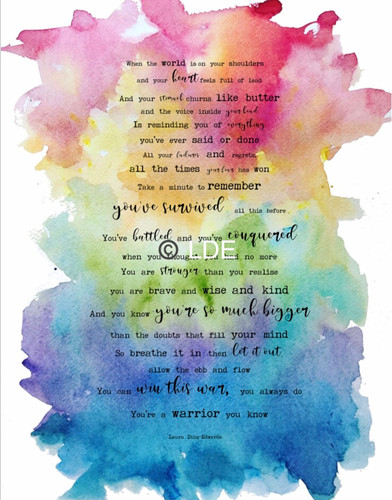 When the world is on your shoulders
and your heart feels full of lead
And your stomach churns like butter
and the voice inside your head
Is reminding you of everything
you've ever said or done
All your failures and regrets,
all the times your fear has won
Take a minute to remember
you've survived all this before
You've battled and you've conquered
when you thought you had no more
You are stronger than you realise
you are brave and wise and kind
And you know you're so much bigger
than the doubts that fill your mind
So breathe it in then let it out,
allow the ebb and flow
You can win this war, you always do
You're a warrior you know
Laura Ding-Edwards
© LDE